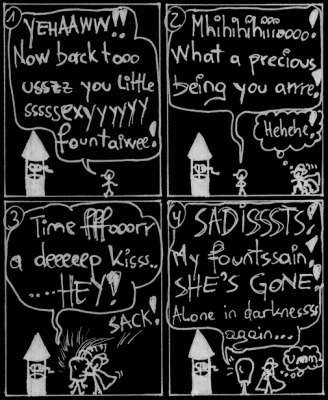 1
YEHAAWW!!
Now back tooo
usszz you little
sssssexyyyyyy
fountaiwee!
2
Mhihihihiiioooo!
What a precious
being you arrre!
Hehehe!
3
Time fffooorr
a deeeeep kisss..
....HEY!
SACK!
4
SADISSSTS!
My fountssain!
SHE'S GONE!
Alone in darknessss
again...
Umm..